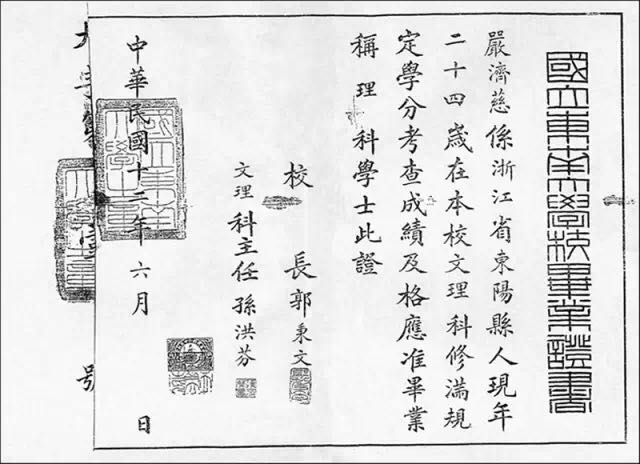 國立東南大學校畢業證書
嚴濟慈係浙江省東陽縣人現年
二十四歲在本校文理科修滿規
定學分考查成績及格應准畢業
稱理科學士此證
校長郭秉文
文理科主任孫洪芬
中華民國十二年六月 日
大字第
號